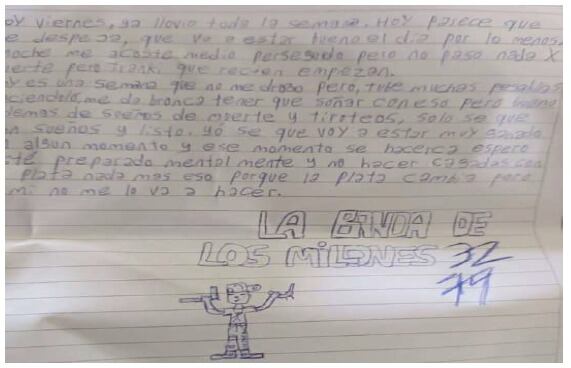 oy viernes, ya llovio toda la semana. Hoy parece que
e despeja, que va a estar bueno el dia por lo menos
noche me acoste medio persegado pero no paso nada x
uerte pero trank, que recien empezan.
y es una semana que no me drogo pero, tube muchas pesadillas
aciendolo, me da bronca tener que soñar con eso pero bueno
demas de sueños de muerte y tiroteos, solo se que
on sueños y listo, yo se que voy a estar muy
n algun momento y ese momento se hacerca espero
té preparado mental mente y no hacer cagadas con
plata nada mas eso porque la plata cambia pero
mi no me lo va a hacer.
LA BANDA DE
LOS MILONES 32
79